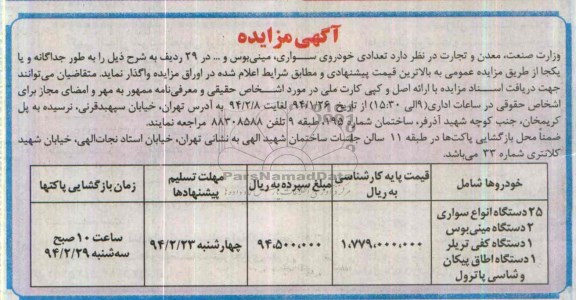 آگهی مزایده
وزارت صنعت، معدن و تجارت در نظر دارد تعدادی خودروی سـواری، مینی‌بوس و ... در ۲۹ ردیف به شرح ذیل را به طور جداگانه و یا
یکجا از طریق مزایده عمومی به بالاترین قیمت پیشنهادی و مطابق شرایط اعلام شده در اوراق مزایده واگذار نماید. متقاضیان می‌توانند
جهت دریافت اسـناد مزایده با ارائه اصل و کپی کارت ملی در مورد اشخاص حقیقی و معرفی‌نامه ممهور به مهر و امضای مجاز برای
اشخاص حقوقی در ساعات اداری(۹الی ۱۵:۳۰) از تاریخ ۹۴/۱/۲۶ لغایت ۹۴/۲/۸ به آدرس تهران، خیابان سپهبدقرنی، نرسیده به پل
کریمخان، جنب کوچه شهید آذرفر، ساختمان شماره ۱۹۵، طبقه ۹ تلفن ۸۸۳۰۸۵۸۸ مراجعه نمایند.
ضمناً محل بازگشایی پاکت‌ها در طبقه ۱۱ سالن جلسات ساختمان شهید الهی به نشانی تهران، خیابان استاد نجات‌الهی، خیابان شهید
کلانتری شماره ۳۳ می‌باشد.
خودروها شامل
قیمت پایه کارشناسی به ریال
مبلغ سپرده به ریال
مهلت تسلیم پیشنهادها
زمان بازگشایی پاکتها
۲۵ دستگاه انواع سواری
۲ دستگاه مینی‌بوس
۱ دستگاه کفی تریلر
۱ دستگاه اطاق پیکان
و شاسی پاترول
۱،۷۷۹،۰۰۰،۰۰۰
۹۴،۵۰۰،۰۰۰
چهارشنبه ۹۴/۲/۲۳
ساعت ۱۰ صبح
سه‌شنبه ۹۴/۲/۲۹
ParsNamadData